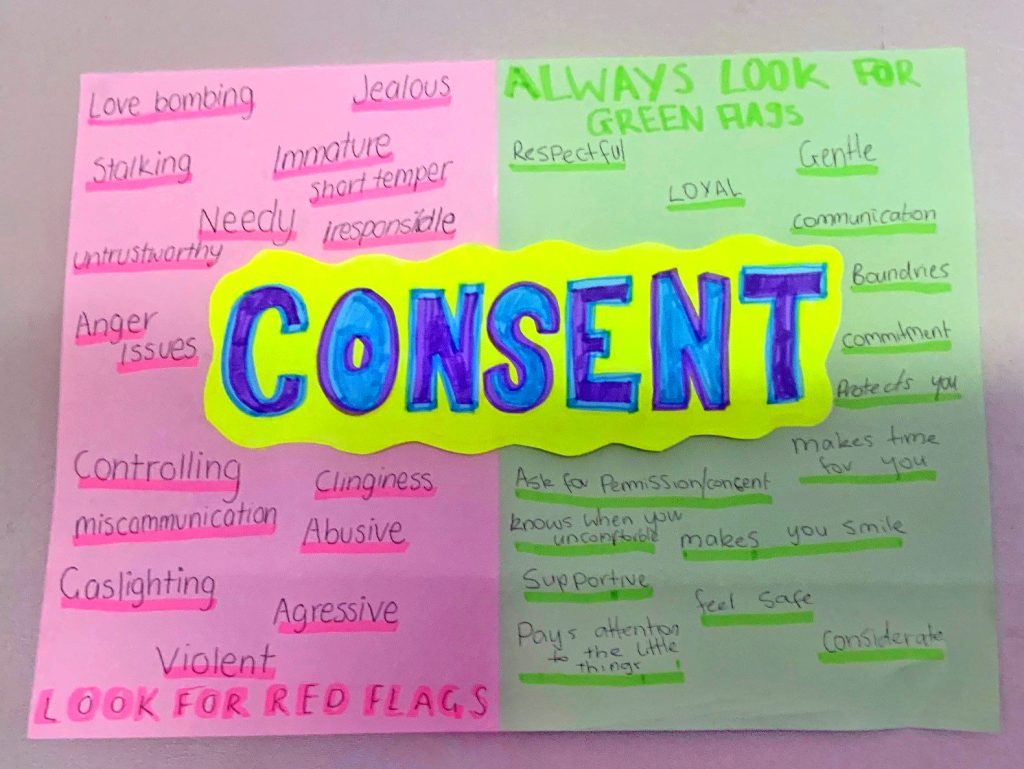 Love bombing
Jealous
Stalking
Immature
short temper
Needy
iresponsidle
untrustworthy
Anger
issues
Controlling
Clinginess
miscommunication
Abusive
Gaslighting
Agressive
Violent
LOOK FOR RED FLAGS
CONSENT
ALWAYS LOOK FOR
GREEN FLAGS
Respectful
Gentle
LOYAL
communication
Boundries
commitment
Protects you
makes time
for you
Ask for Permission/concent
knows when you
uncomftorble
makes you smile
Supportive
feel safe
Pays attention
to the little
things
Considerate